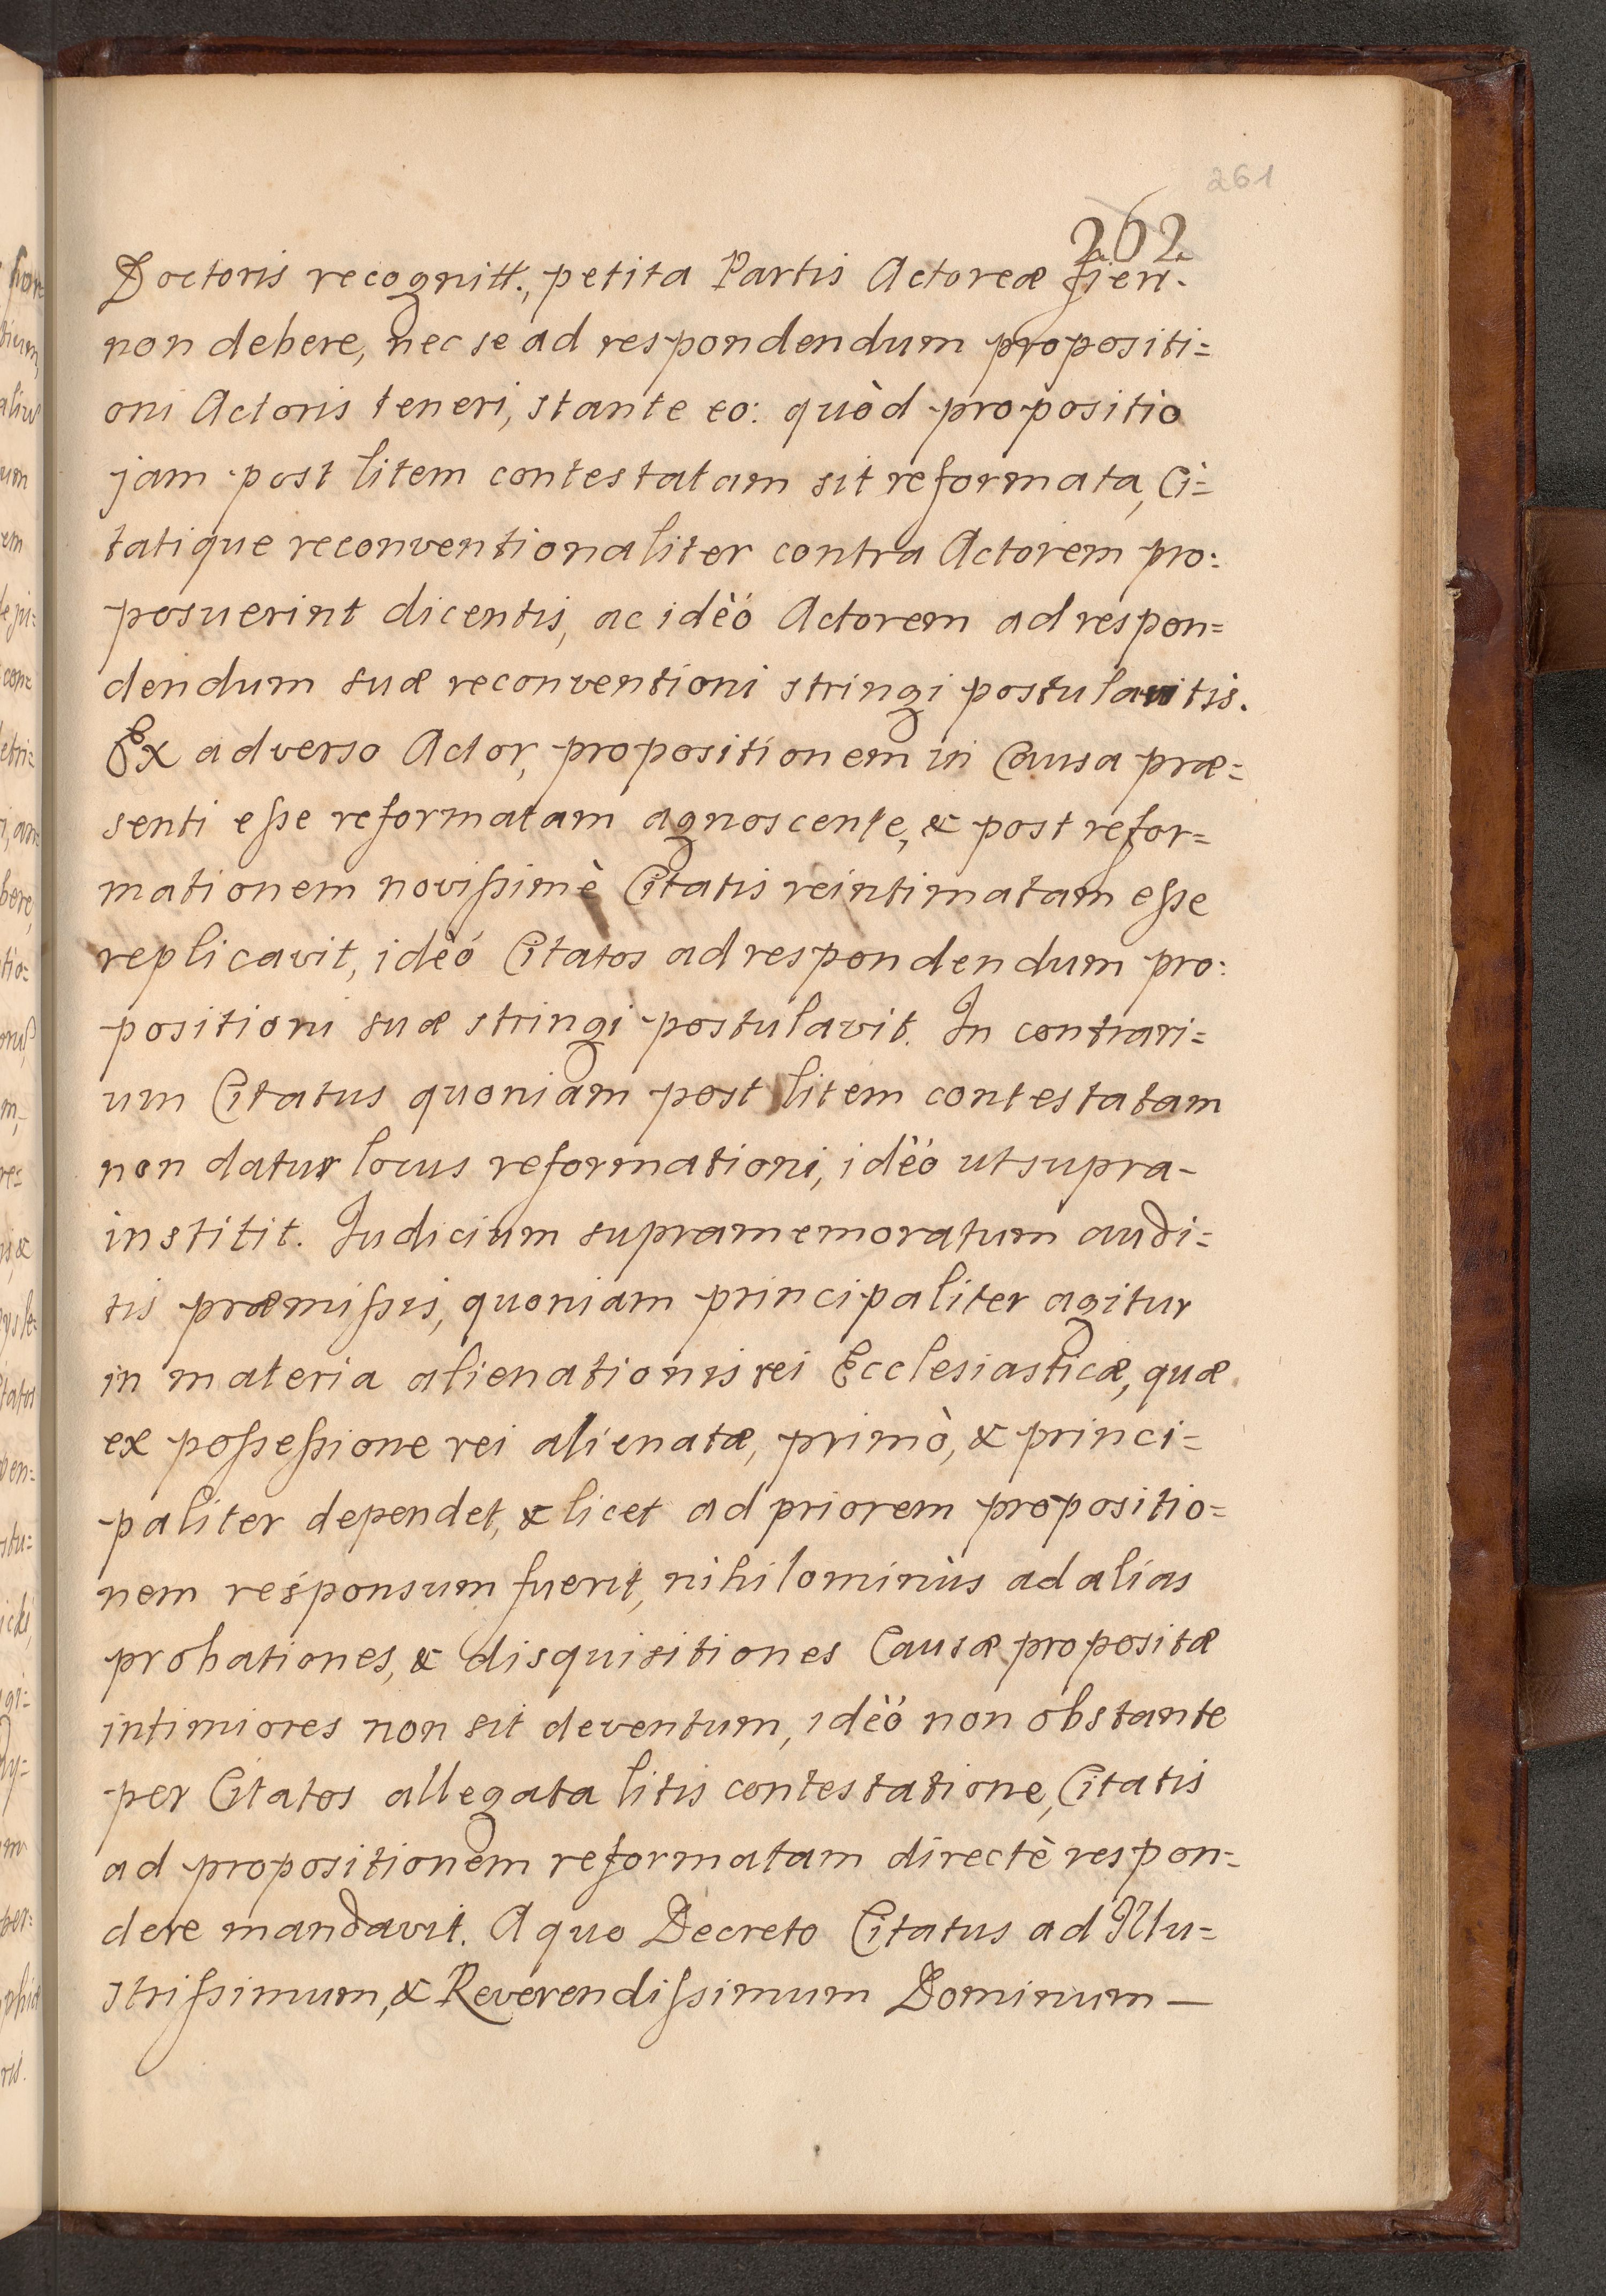 261
262
Doctoris recognitt., petita Partis Actoreæ fieri.
non debere, nec se ad respondendum propositi=
oni Actoris teneri, stante eo: quòd propositio
jam post litem contestatam sit reformata, Ci=
tatique reconventionaliter contra Actorem pro:
posuerint dicentis, ac idèó Actorem ad respon=
dendum suæ reconventioni stringi postulavitis.
Ex adverso Actor, propositionem in Causa præ=
senti eſse reformatam agnoscente, & post refor=
mationem noviſsimè Citatis reintimatam eſse
replicavit, idèó Citatos ad respondendum pro:
positioni suæ stringi postulavit. In contrari=
um Citatus quoniam post litem contestatam
non datur locus reformationi, idèó ut supra-
institit. Iudicium supramemoratum audi=
tis præmiſsis, quoniam principaliter agitur
in materia alienationis rei Ecclesiasticæ, quæ
ex poſseſsione rei alienatæ, primò, & princi=
paliter dependet, & licet ad priorem propositio=
nem responsum fuerit, nihilominùs ad alias
probationes, & disquisitiones Causæ propositæ
intimiores non sit deventum, idèó non obstante
per Citatos allegata litis contestatione, Citatis
ad propositionem reformatam directè respon=
dere mandavit. A quo Decreto Citatus ad Illu=
striſsimum, & Reverendiſsimum Dominum —